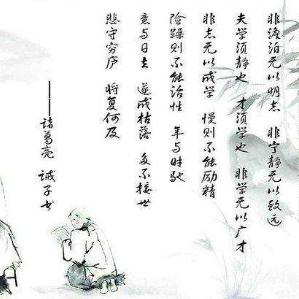 非淡泊无以明志 非宁静无以致远
夫学须静也 才须学也 非学无以广才
非志无以成学 慢则不能励精
险躁则不能治性 年与时驰
意与日去 遂成枯落 多不接世
悲守穷庐 将复何及
——诸葛亮 诫子书